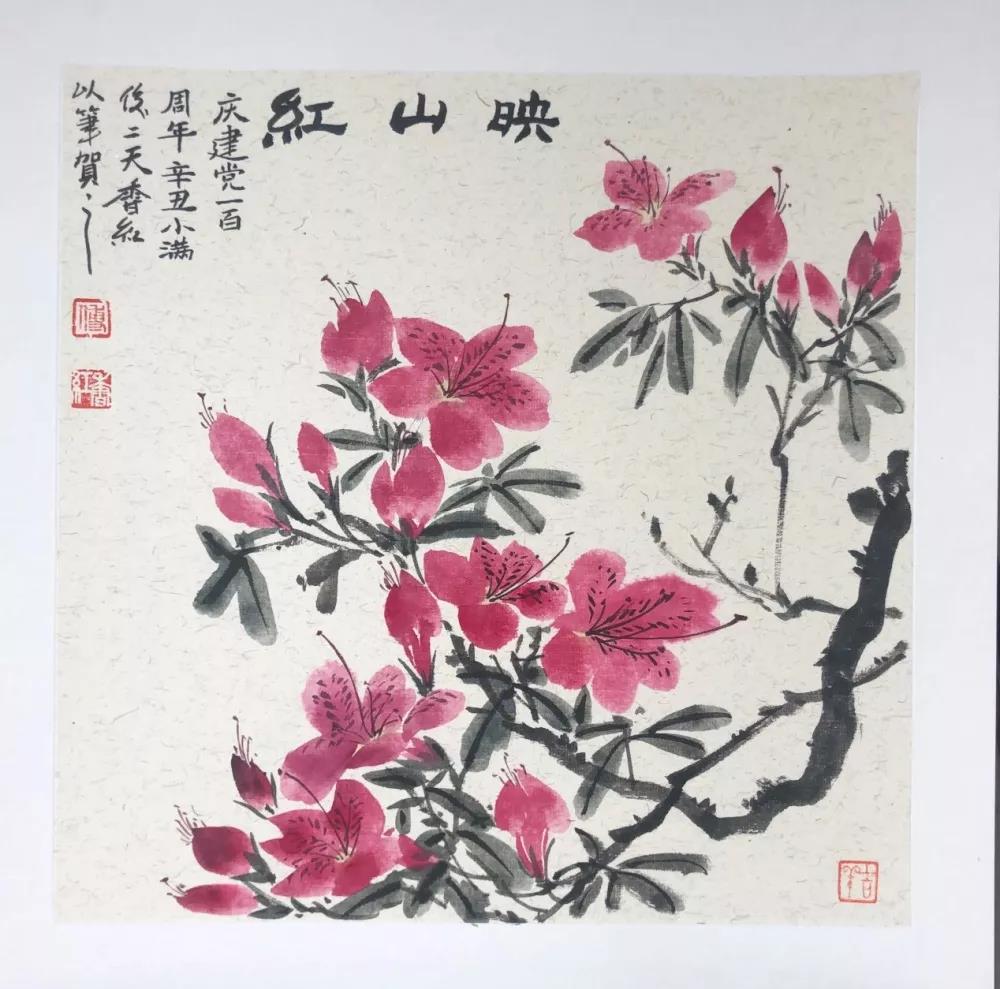 映山紅
庆建党一百
周年辛丑小满
後二天香紅
以筆賀之
香紅